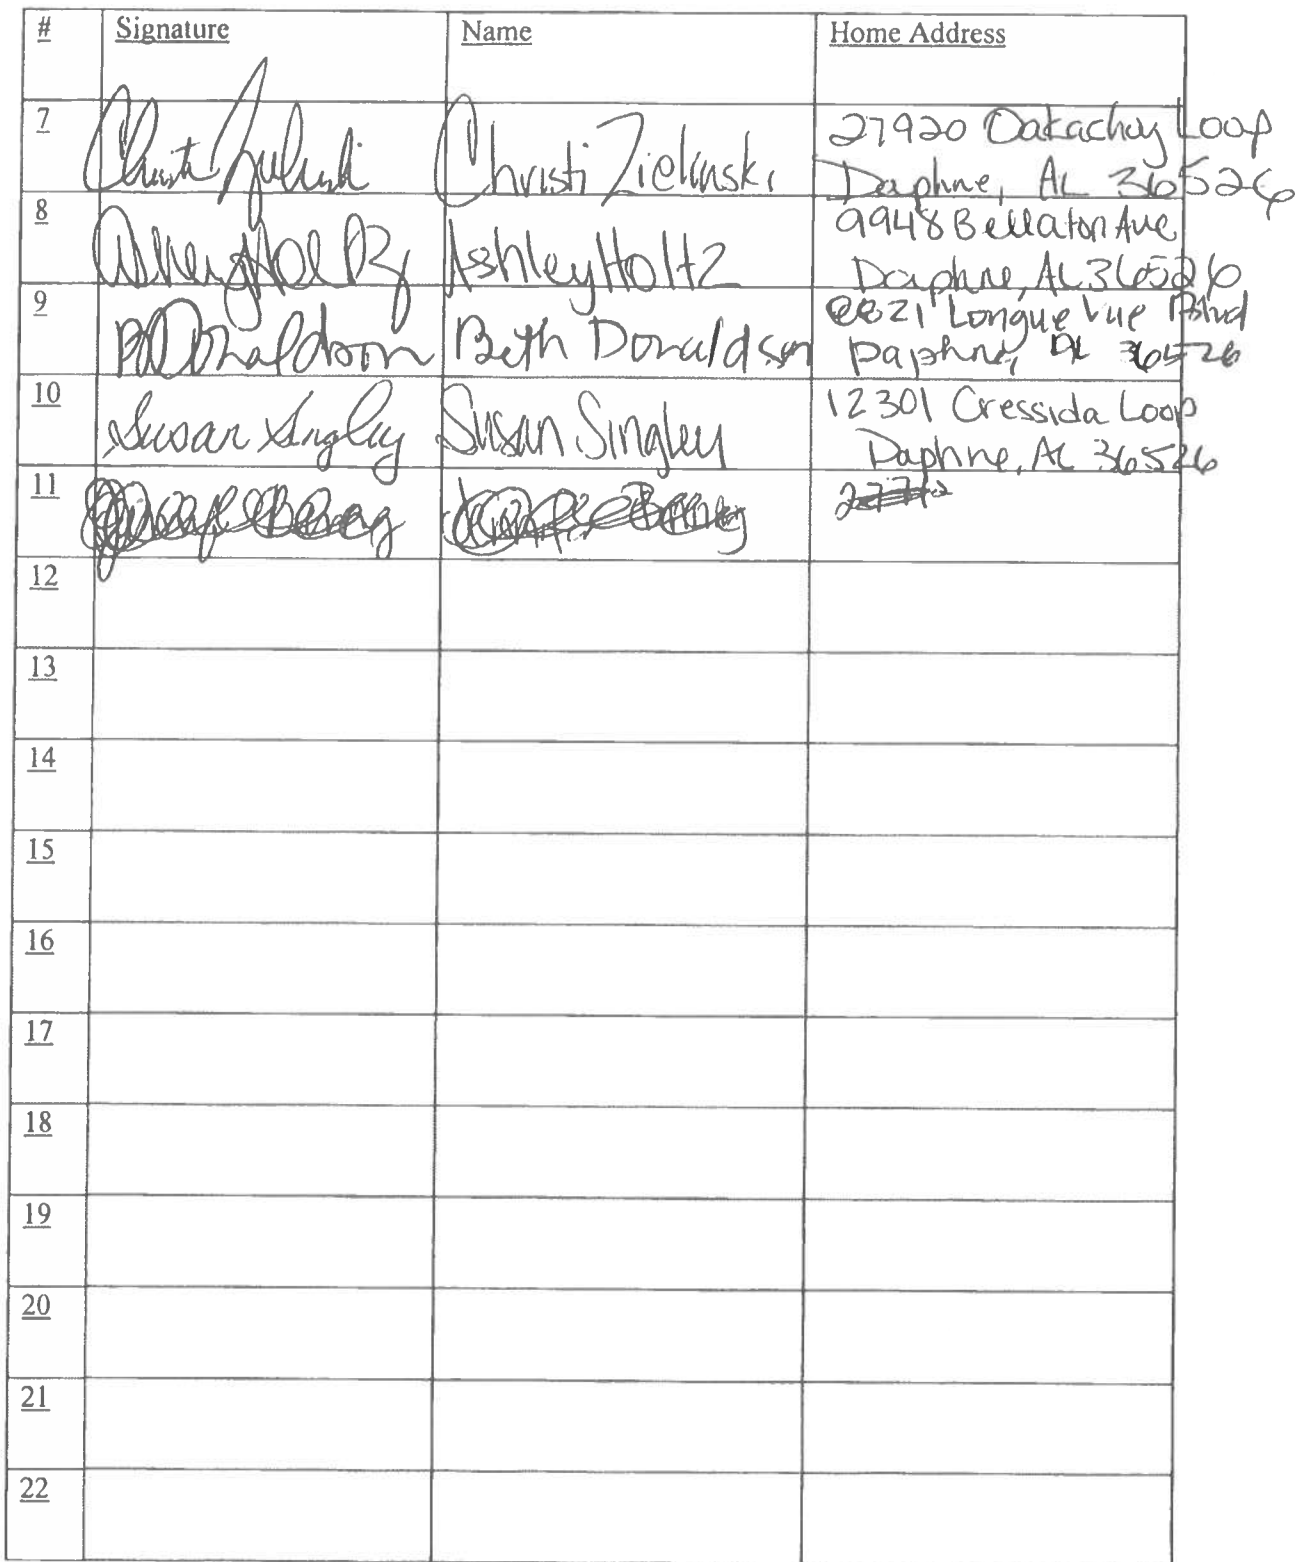 # Signature Name Home Address
7 Christi Zielinski Christi Zielinski 27920 Oakachoy Loop
Daphne, AL 36526
8 Ashley Holtz Ashley Holtz 9948 Bellaton Ave
Daphne, AL 36526
9 B Donaldson Beth Donaldson Longue Vue Blvd
Daphne, AL 36526
10 Susan Singley Susan Singley 12301 Cressida Loop
Daphne, AL 36526
11
12
13
14
15
16
17
18
19
20
21
22